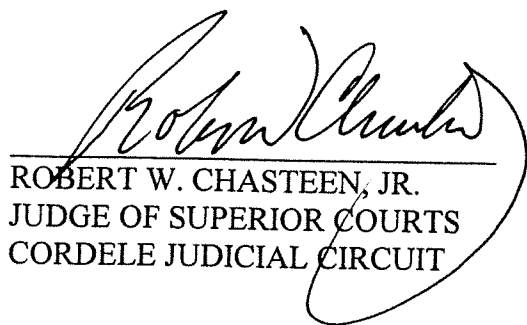 ROBERT W. CHASTEEN, JR.
JUDGE OF SUPERIOR COURTS
CORDELE JUDICIAL CIRCUIT